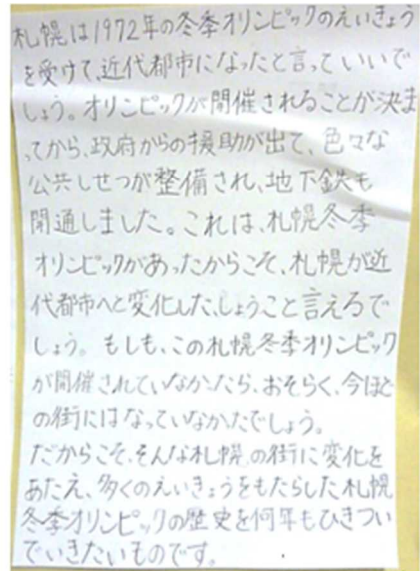 札幌は1972年の冬季オリンピックのえいきょう
を受けて、近代都市になったと言っていいで
しょう。オリンピックが開催されることが決ま
ってから、政府からの援助が出て、色々な
公共しせつが整備され、地下鉄も
開通しました。これは、札幌冬季
オリンピックがあったからこそ、札幌が近
代都市へと変化した、しょうこと言えるで
しょう。もしも、この札幌冬季オリンピック
が開催されていなかったら、おそらく、今ほど
の街にはなっていなかったでしょう。
だからこそ、そんな札幌の街に変化を
あたえ、多くのえいきょうをもたらした札幌
冬季オリンピックの歴史を何年もひきつい
でいきたいものです。